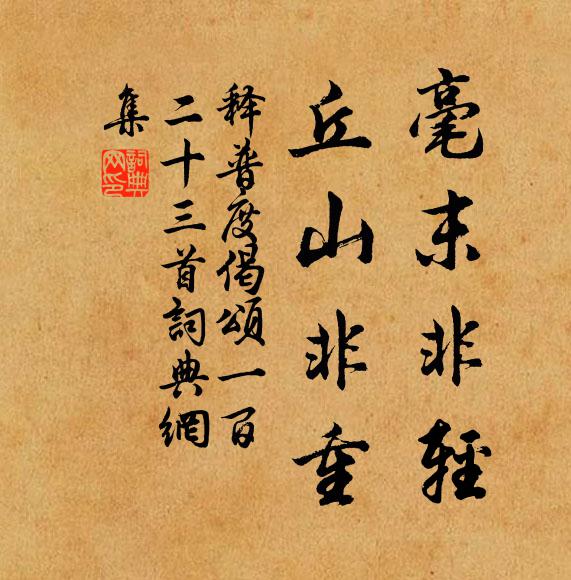 毫末非輕
丘山非重
释普度偈頌一百
二十三首詞典網
集
詞典
网印